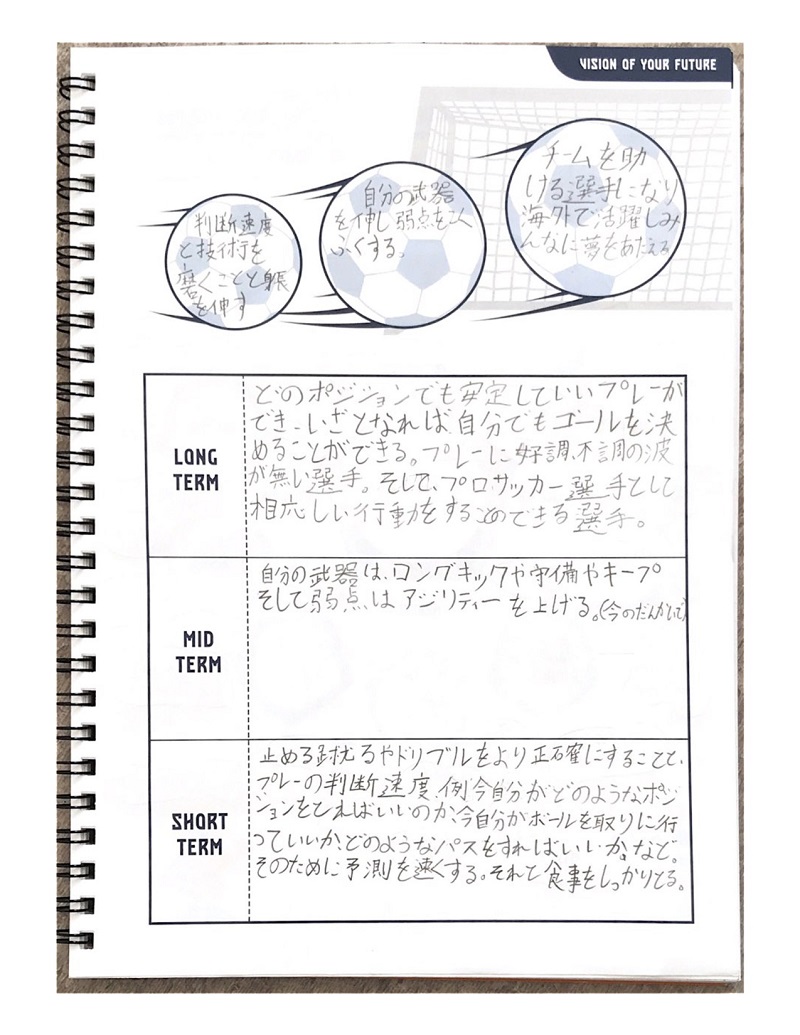 VISION OF YOUR FUTURE
判断速度
と技術を
磨くことと身長
を伸す
自分の武器
を伸し弱点をこく
ふくする。
チームを助
ける選手になり
海外で活躍しみ
んなに夢をあたえる
LONG TERM
どのポジションでも安定していいプレーが
でき、いざとなれば自分でもゴールを決
めることができる。プレーに好調、不調の波
が無い選手。そして、プロサッカー選手として
相応しい行動をすることのできる選手。
MID TERM
自分の武器は、ロングキックや守備やキープ
そして弱点はアジリティーを上げる。(今のだんかいで)
SHORT TERM
止める蹴るやドリブルをより正確にすることと、
プレーの判断速度、例今自分がどのようなポジ
ションをとればいいのか今自分がボールを取りに行
っていいか、どのようなパスをすればいいか、など。
そのために予測を速くする。それと食事をしっかりとる。